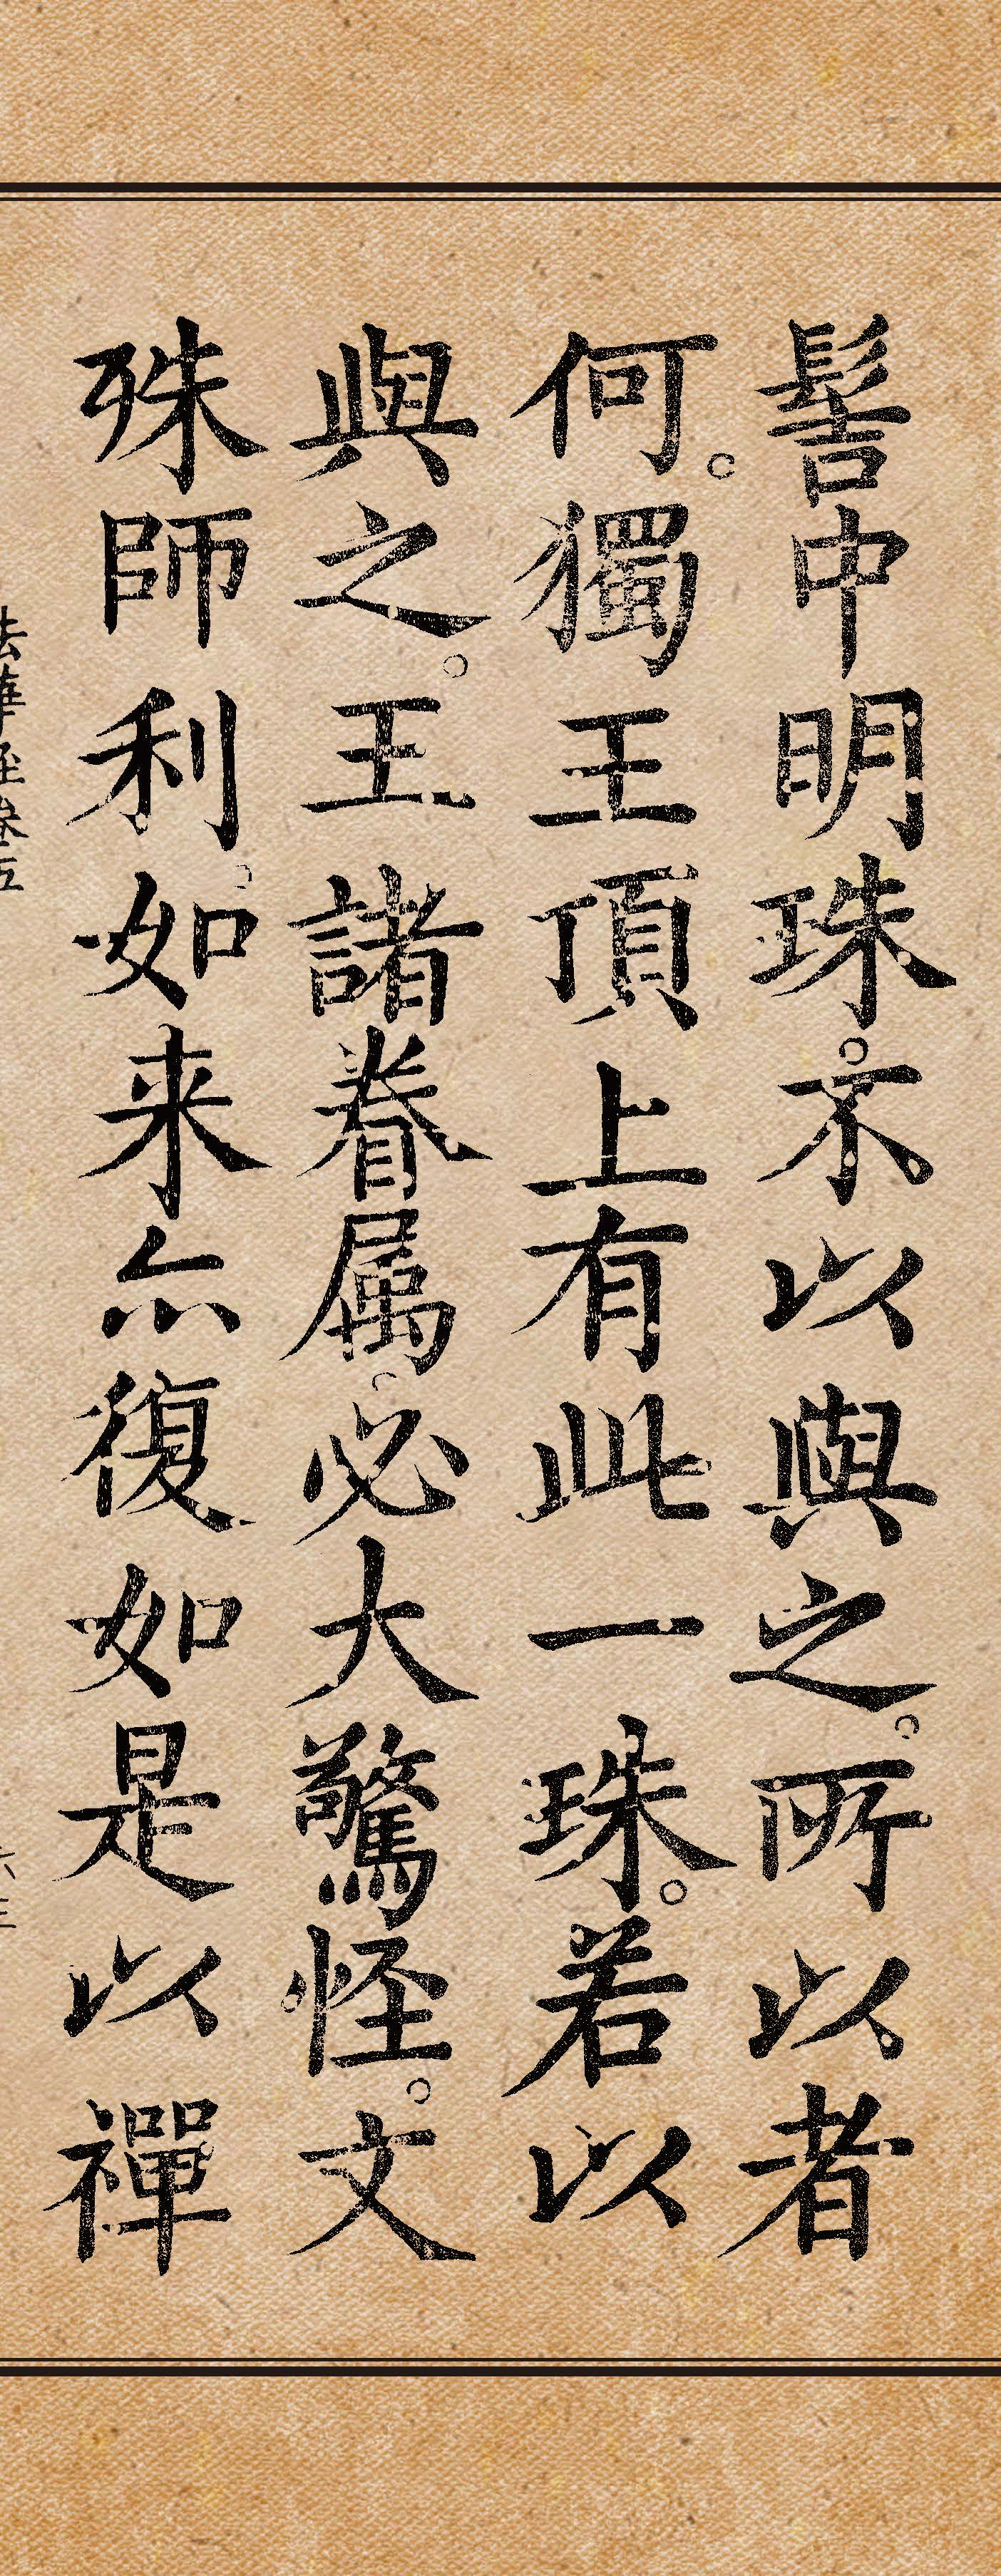 髻中明珠。不以與之。所以者
何。獨王頂上有此一珠。若以
與之。王諸眷属。必大驚怪。文
殊師利。如来亦復如是以禪
法華経巻五